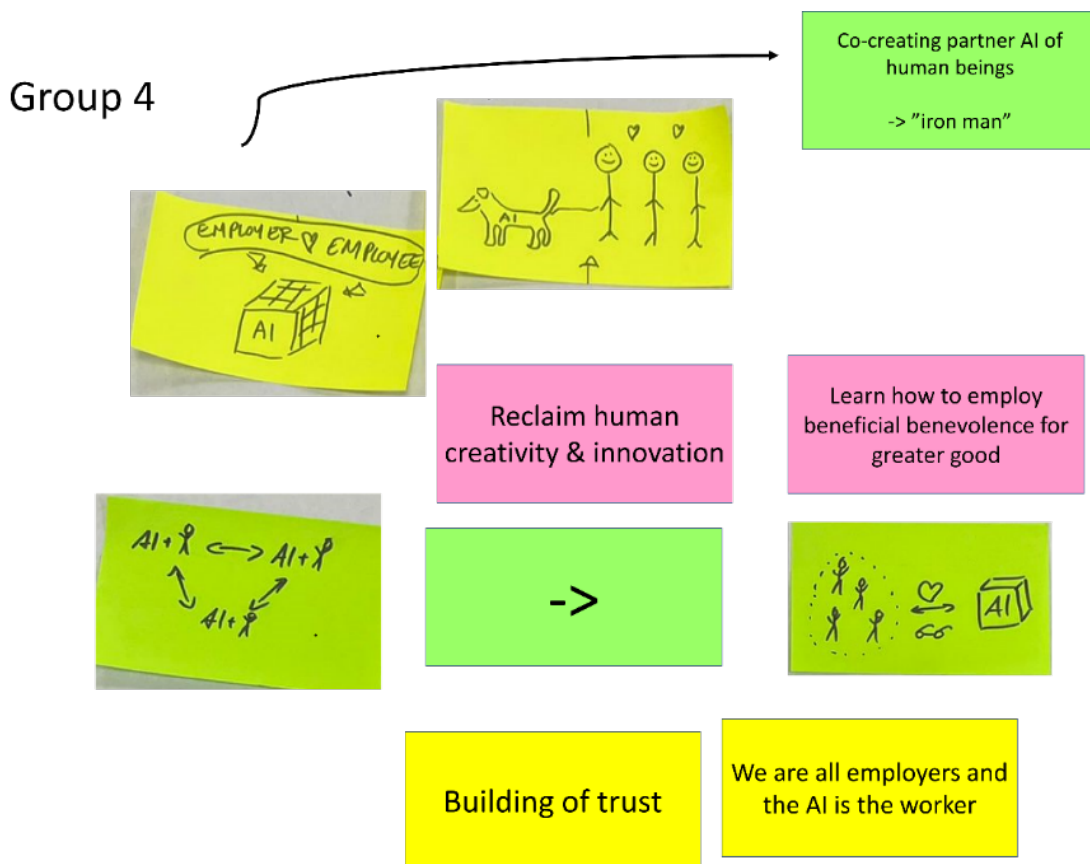 Group 4
Co-creating partner AI of
human beings
-> ”iron man”
AI
EMPLOYER ♡ EMPLOYEE
AI
Reclaim human
creativity & innovation
Learn how to employ
beneficial benevolence for
greater good
AI+ AI+
AI+
->
AI
Building of trust
We are all employers and
the AI is the worker